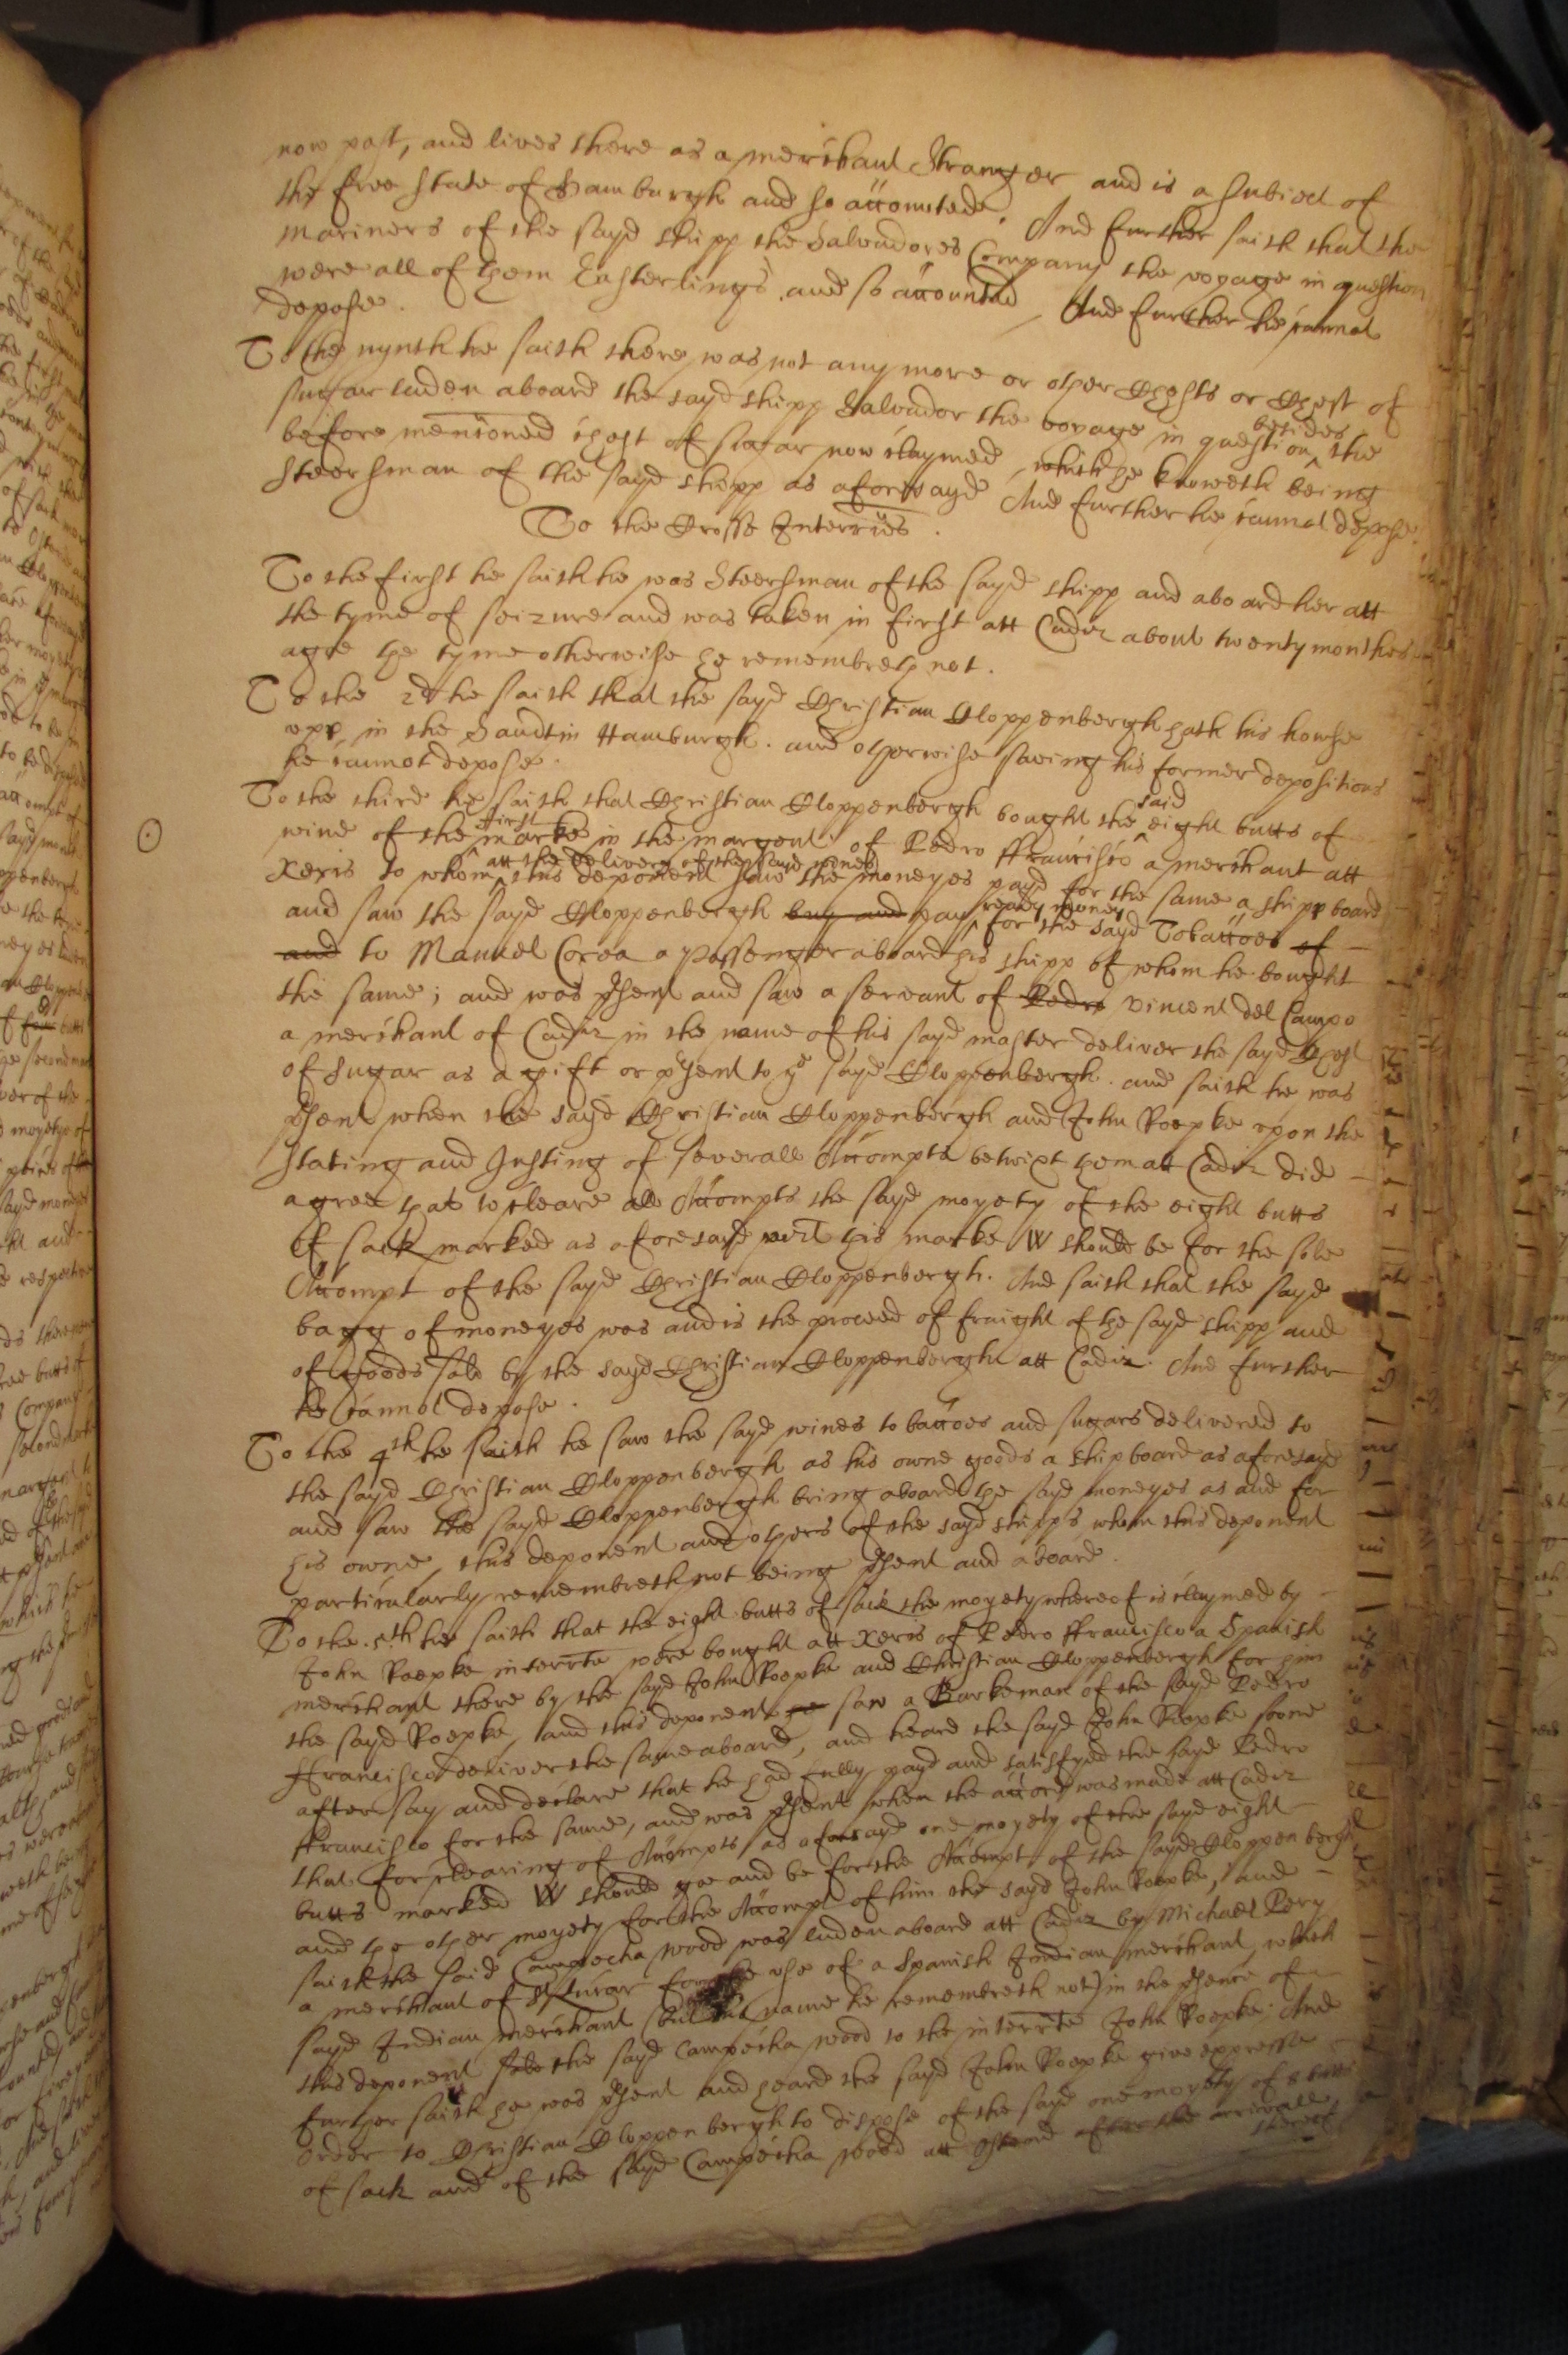 now past, and lives there as a merchant Stranger and is a subiect of
the free State of Hamburgh and so accounted. And further saith that the
mariners of the sayd shipp the Salvadores Company the voyage in question
were all of them Easterlings and so accounted And further hee cannot
depose.
To the nynth he saith there was not any more or other Chests or Chest of
sugar laden aboard the sayd shipp Salvador the voyage in question besides the
before mencioned chest of sugar now claymed, which he knoweth being
Steersman of the sayd shipp as aforesayd And further he cannot depose.
To the Crosse Interries.
To the first he saith he was Steersman of the sayd shipp and aboard her att
the tyme of seizure and was taken in first att Cadiz about twenty monthes
agoe the tyme otherwise he remembreth not.
To the 2d he saith that the sayd Christian Cloppenbergh hath his howse
upp in the Sandt in Hamburgh. and otherwise saving his former depositions
he cannot depose.
To the third he saith that Christian Cloppenbergh bought the said eight butts of
wine of the first marke in the margent of Pedro Ffrancisco a merchant att
Xeris to whom att the delivery of the sayd wines this deponent saw the moneyes payd for the same a shipp board
and saw the sayd Cloppenbergh buy and pay ready money for the sayd Tobaccoes of
and to Manuel Corea a passenger aboard his shipp of whom he bought
the same; and was present and saw a servant of Pedro Vincent del Campo
a merchant of Cadiz in the name of his sayd master deliver the sayd Chest
of sugar as a gift or present to ye sayd Cloppenbergh. and saith he was
present when the sayd Christian Cloppenbergh and John Roepke upon the
stating and Justing of severall Accompts betwixt them att Cadiz did
agree that to cleare all Accompts the sayd moyety of the eight butts
of sack marked as aforesayd with this marke W should be for the sole
Accompt of the sayd Christian Cloppenbergh. And saith that the sayd
bagg of moneyes was and is the proceed of fraight of the sayd shipp and
of goods sold by the sayd Christian Cloppenbergh att Cadiz. And further
he cannot depose.
To the 4th he saith he saw the sayd wines tobaccoes and sugars delivered to
the sayd Christian Cloppenbergh as his owne goods a shipboard as aforesayd
and saw the sayd Cloppenbergh bring aboard the sayd moneyes as and for
his owne, this deponent and others of the sayd shipps whom this deponent
particularly remembreth not being present and aboard.
To the 5th he saith that the eight butts of sack the moyety whereof is claymed by
John Roepke interrate were bought att Xeris of Pedro Ffrancisco a Spanish
merchant there by the sayd John Roepke and Christian Cloppenbergh for him
the sayd Roepke, and this deponent he saw a Barkeman of the sayd Pedro
Ffrancisco deliver the same aboard, and heard the sayd John Roepke soone
after say and declare that he had fully payd and satisfyed the sayd Pedro
Ffrancisco for the same, and was present when the accord was made att Cadiz
that for clearing of Accompts as aforesayd one moyety of the sayd eight
butts marked W should goe and be for the Accompt of the sayd Cloppenbergh
and the other moyety for the Accompt of him the sayd John Roepke, and
saith the said Campecha wood was laden aboard att Cadiz by Michael Pery
a merchant of St Lucar for the use of a Spanish Indian merchant, which
sayd Indian merchant (but his name he remembreth not) in the presence of
this deponent sold the sayd Campecha wood to the interrate John Roepke. And
further saith he was present and heard the sayd John Roepke give expresse
order to Christian Cloppenbergh to dispose of the sayd one moyety of 8 butts
of sack and of the sayd Campecha wood att Ostend after the arrivall
thereof